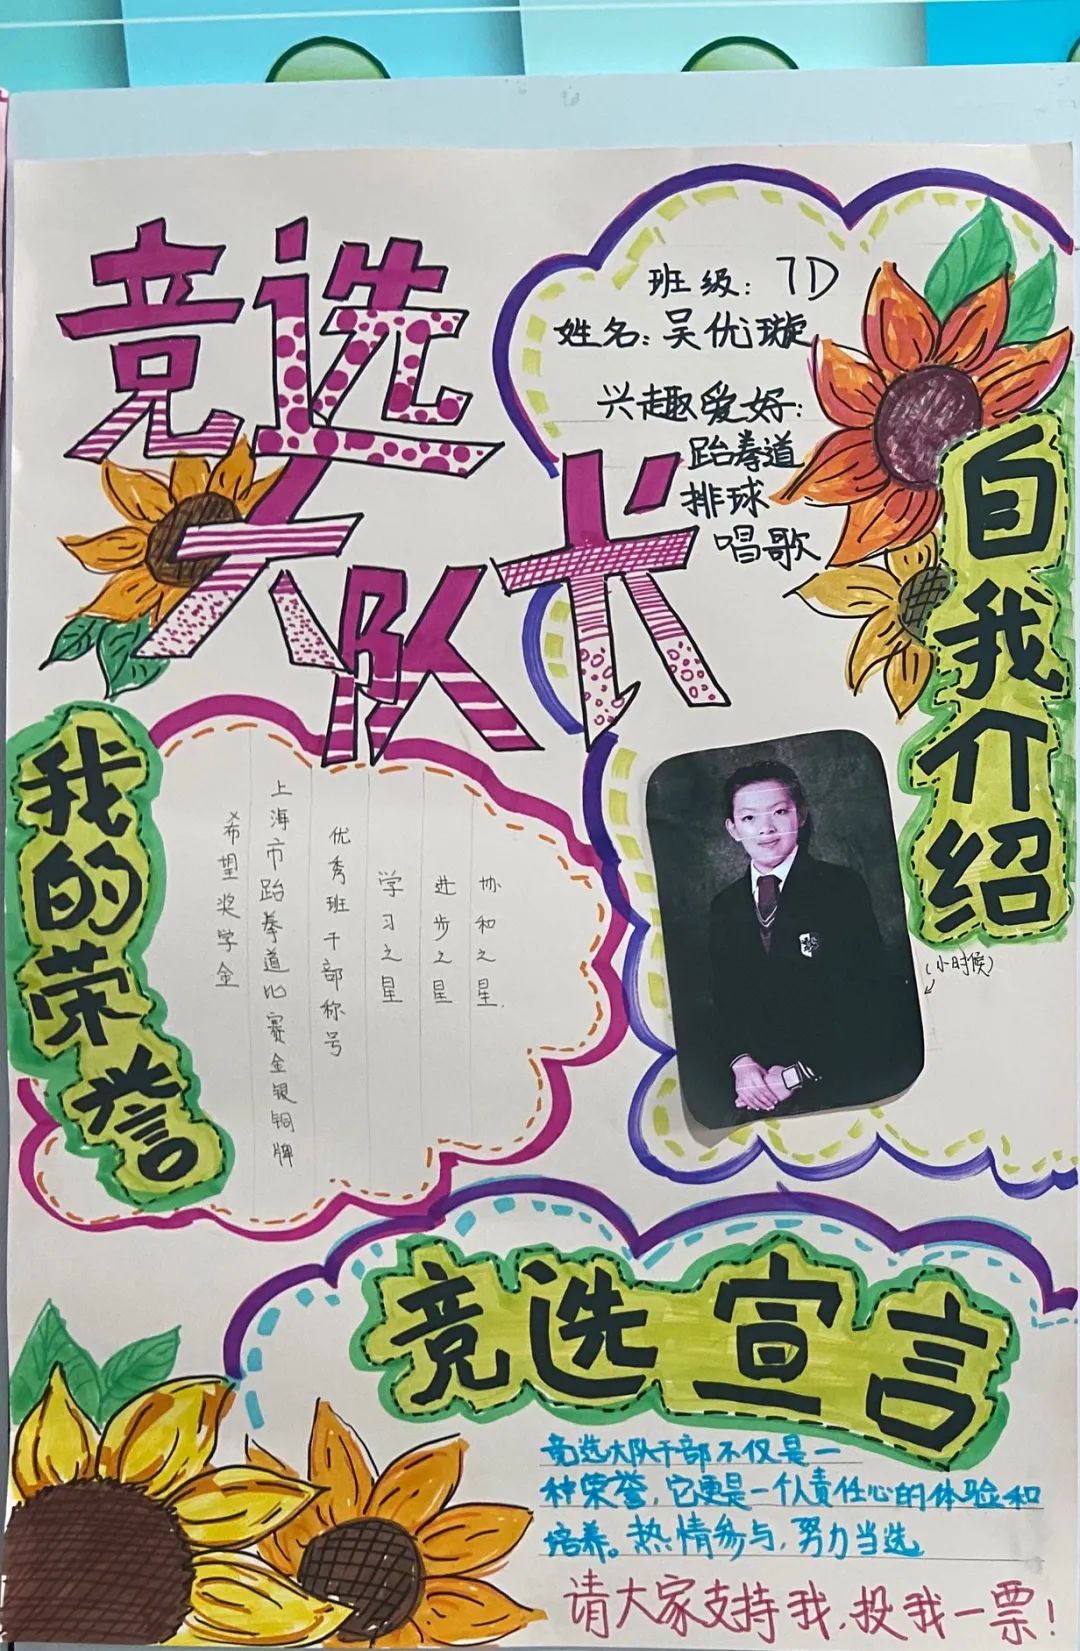 竞选
大队长
班级：7D
姓名：吴优璇
兴趣爱好：
跆拳道
排球
唱歌
自我介绍
(小时候)
我的荣誉
协和之星
进步之星
学习之星
优秀班干部称号
上海市跆拳道比赛金银铜牌
希望奖学金
竞选宣言
竞选大队干部不仅是一
种荣誉，它更是一个人责任心的体验和
培养。热情参与，努力当选
请大家支持我，投我一票！